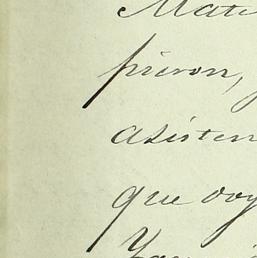 Mate
pieron,
asisten
que voy